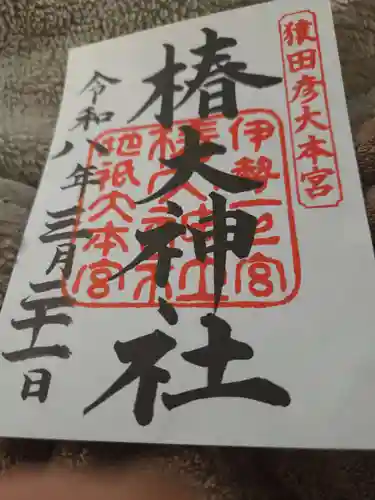 猿田彦大本宮
椿大神社
伊勢一の宮
椿大神社
地祇大本宮
令和八年三月二十一日